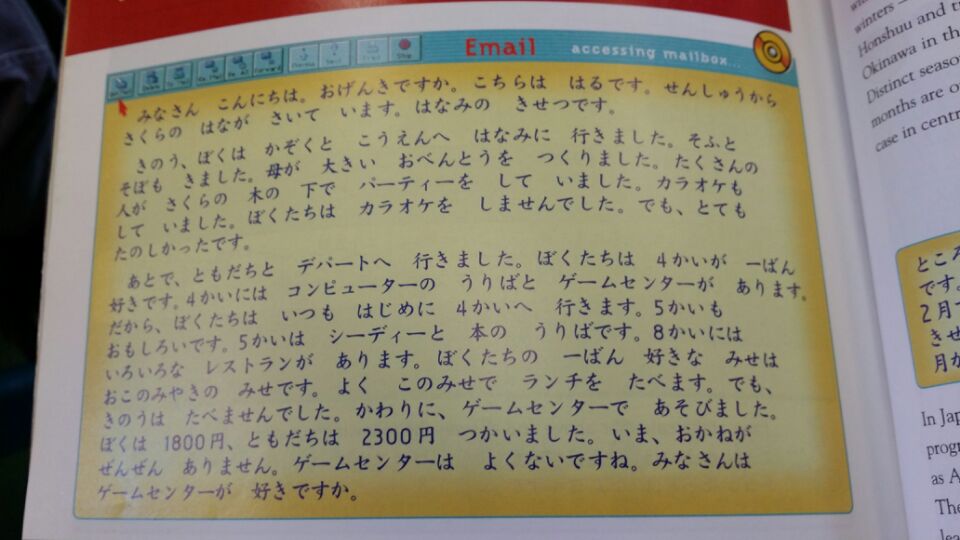 Email accessing mailbox...
みなさん こんにちは。おげんきですか。こちらは はるです。せんしゅうから
さくらの はなが さいて います。はなみの きせつです。
きのう、ぼくは かぞくと こうえんへ はなみに 行きました。そふと
そぼも きました。母が 大きい おべんとうを つくりました。たくさんの
人が さくらの 木の 下で パーティーを して いました。カラオケも
して いました。ぼくたちは カラオケを しませんでした。でも、とても
たのしかったです。
あとで、ともだちと デパートへ 行きました。ぼくたちは 4かいが 一ばん
好きです。4かいには コンピューターの うりばと ゲームセンターが あります。
だから、ぼくたちは いつも はじめに 4かいへ 行きます。5かいも
おもしろいです。5かいは シーディーと 本の うりばです。8かいには
いろいろな レストランが あります。ぼくたちの 一ばん 好きな みせは
おこのみやきの みせです。よく このみせで ランチを たべます。でも、
きのうは たべませんでした。かわりに、ゲームセンターで あそびました。
ぼくは 1800円、ともだちは 2300円 つかいました。いま、おかねが
ぜんぜん ありません。ゲームセンターは よくないですね。みなさんは
ゲームセンターが 好きですか。
winters —
Honshuu and
Okinawa in th
Distinct seaso
months are o
case in centr
ところ
です。
2月
きせ
月か
In Jap
progr
as A
The
lea